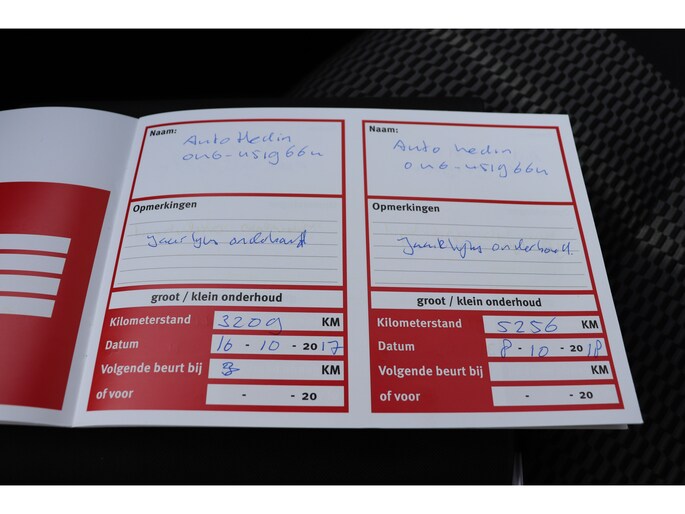 Naam:
Auto Hedin
046-4519664
Opmerkingen
Jaarlijks onderhoud
groot / klein onderhoud
Kilometerstand 3209 KM
Datum 16 - 10 - 2017
Volgende beurt bij KM
of voor - - 20
Naam:
Auto Hedin
046-4519664
Opmerkingen
Jaarlijks onderhoud.
groot / klein onderhoud
Kilometerstand 5256 KM
Datum 8 - 10 - 2018
Volgende beurt bij KM
of voor - - 20